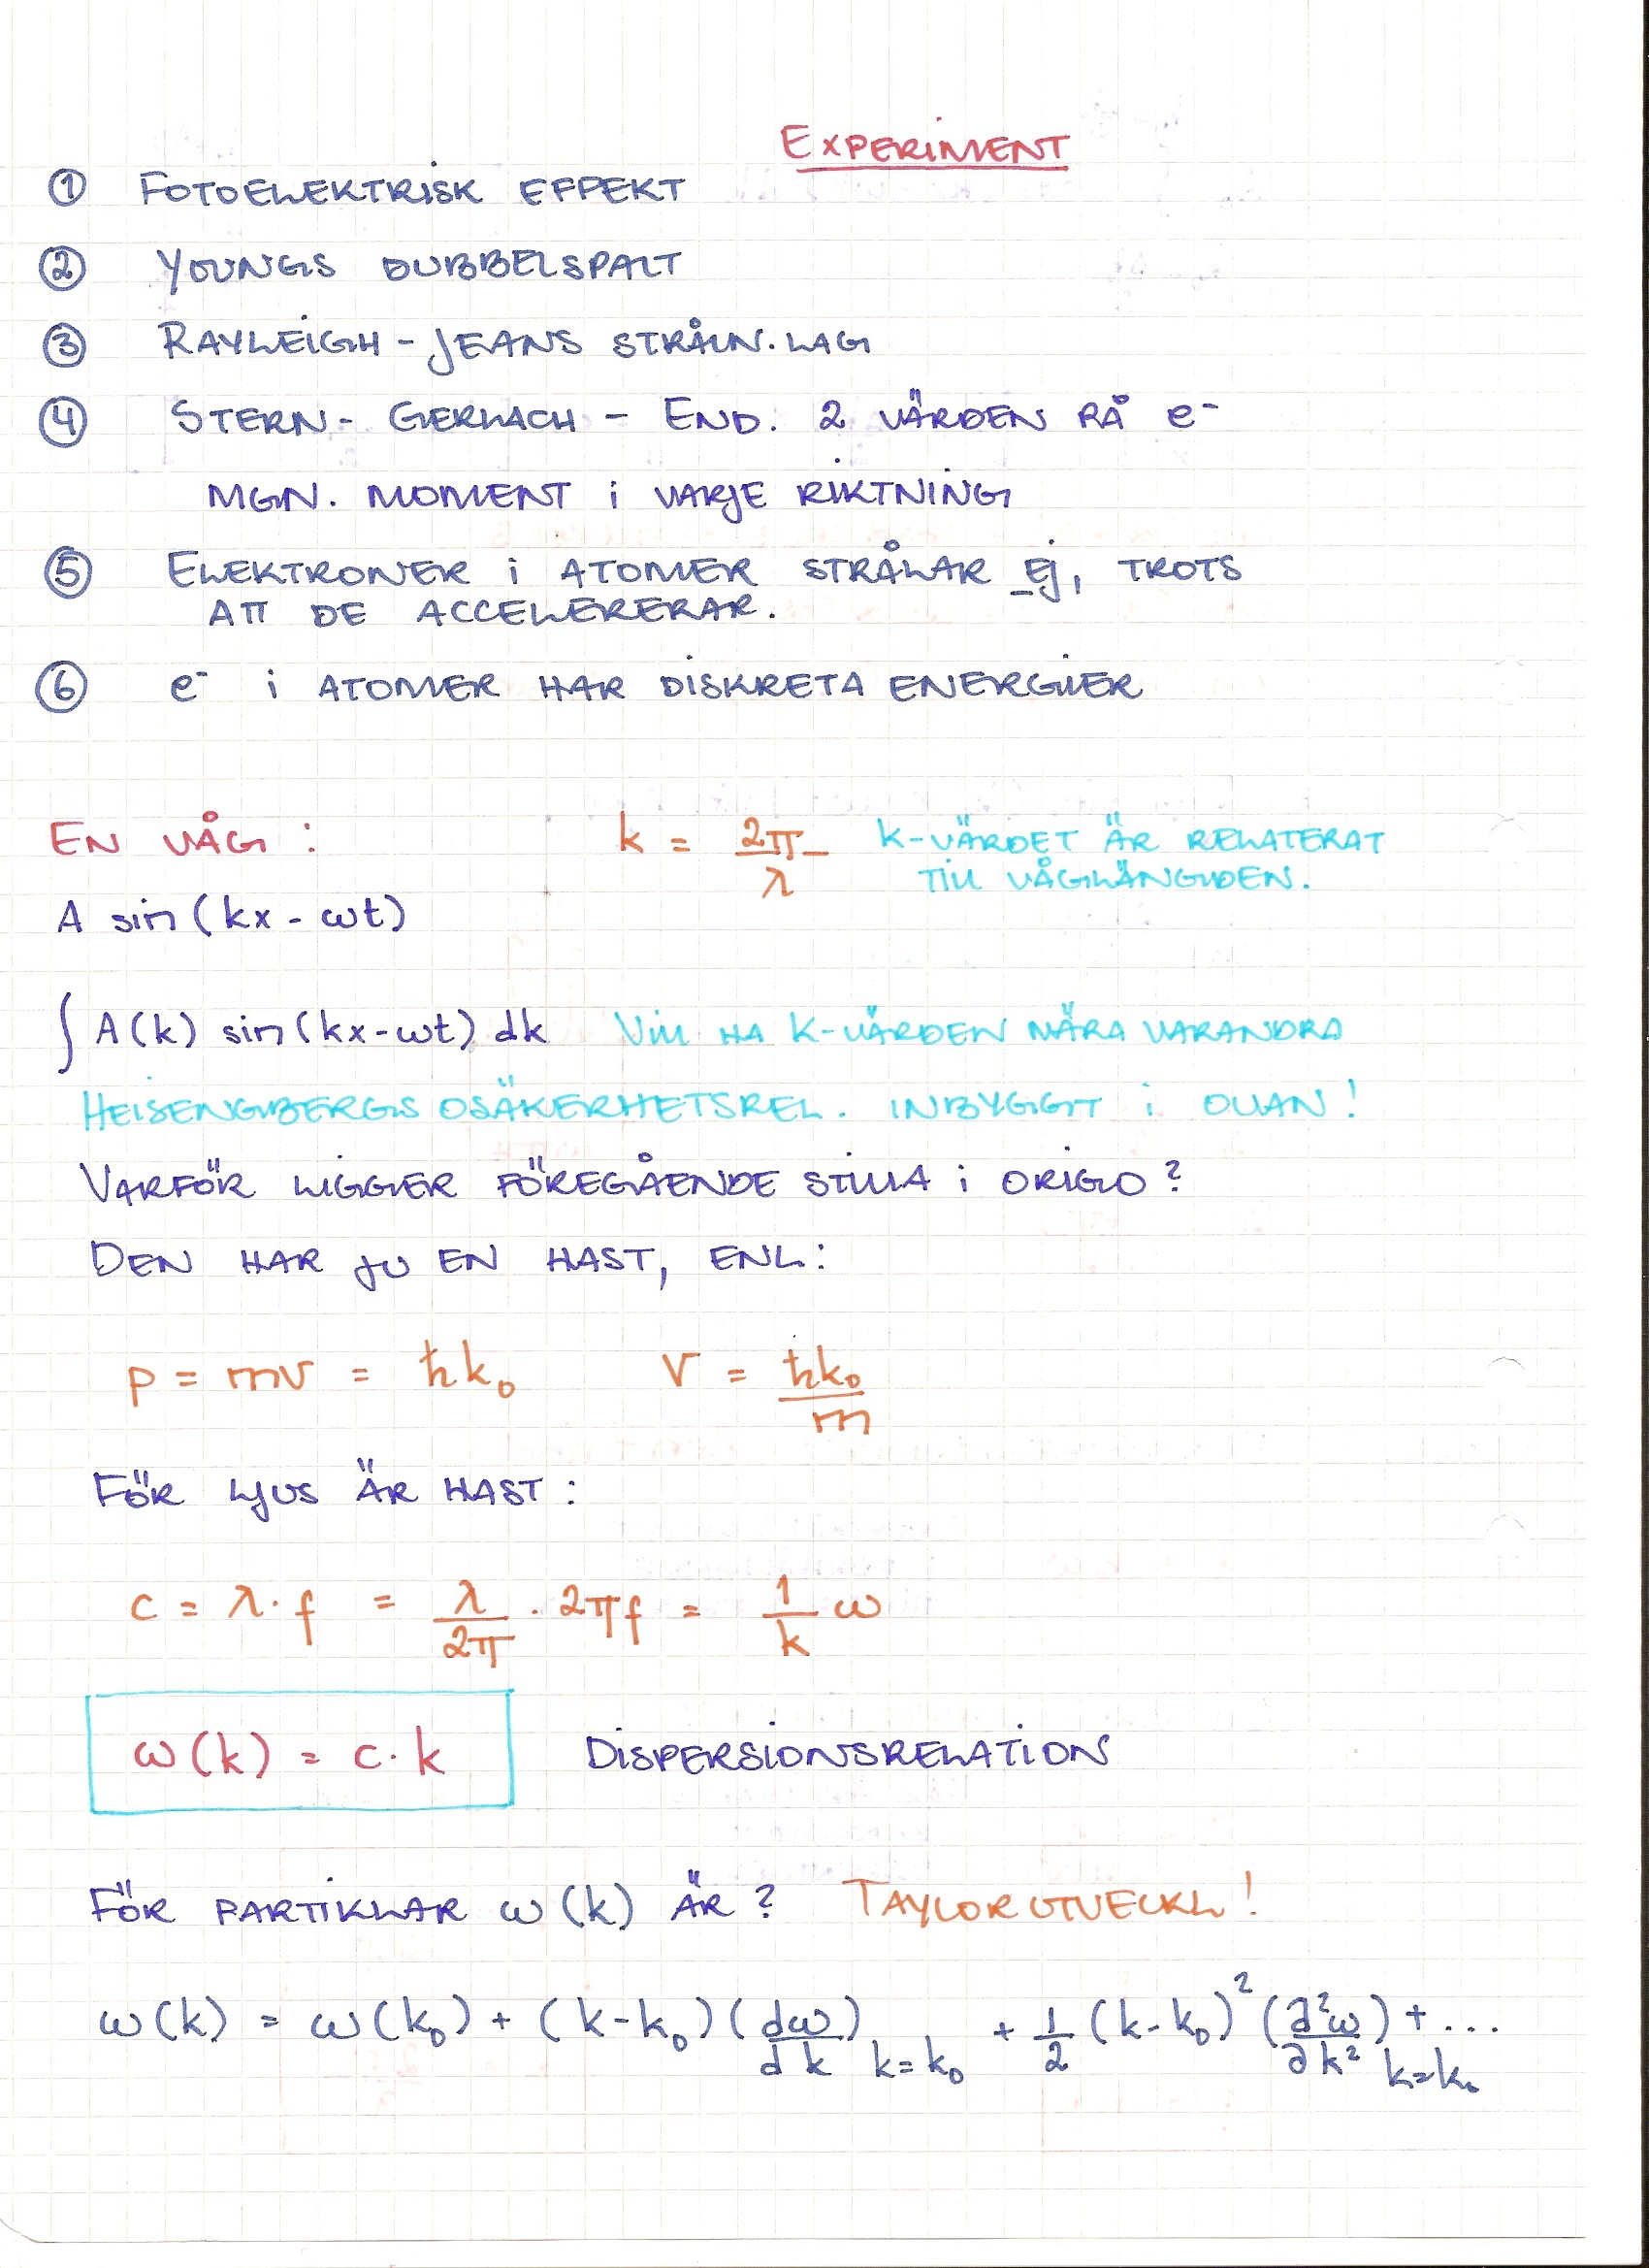 EXPERIMENT
① FOTOELEKTRISK EFFEKT
② YOUNGS DUBBELSPALT
③ RAYLEIGH-JEANS STRÅLN.LAG
④ STERN-GERLACH - END. 2 VÄRDEN PÅ e⁻
MGN. MOMENT i VARJE RIKTNING
⑤ ELEKTRONER i ATOMER STRÅLAR Ej, TROTS
ATT DE ACCELERERAR.
⑥ e⁻ i ATOMER HAR DISKRETA ENERGIER
EN VÅG: k = 2π/λ K-VÄRDET ÄR RELATERAT
TILL VÅGLÄNGDEN.
A sin(kx - ωt)
∫ A(k) sin(kx-ωt) dk VILL HA K-VÄRDEN NÄRA VARANDRA
HEISENGBERGS OSÄKERHETSREL. INBYGGT i OVAN!
VARFÖR LIGGER FÖREGÅENDE STILLA i ORIGO?
DEN HAR JU EN HAST, ENL:
p = mv = ħk₀ v = ħk₀/m
FÖR LJUS ÄR HAST:
c = λ·f = λ/2π · 2πf = 1/k ω
ω(k) = c·k DISPERSIONSRELATION
FÖR PARTIKLAR ω(k) ÄR? TAYLORUTVECKL!
ω(k) = ω(k₀) + (k-k₀)(dω/dk)k=k₀ + 1/2 (k-k₀)²(∂²ω/∂k²)k=k₀ + ...